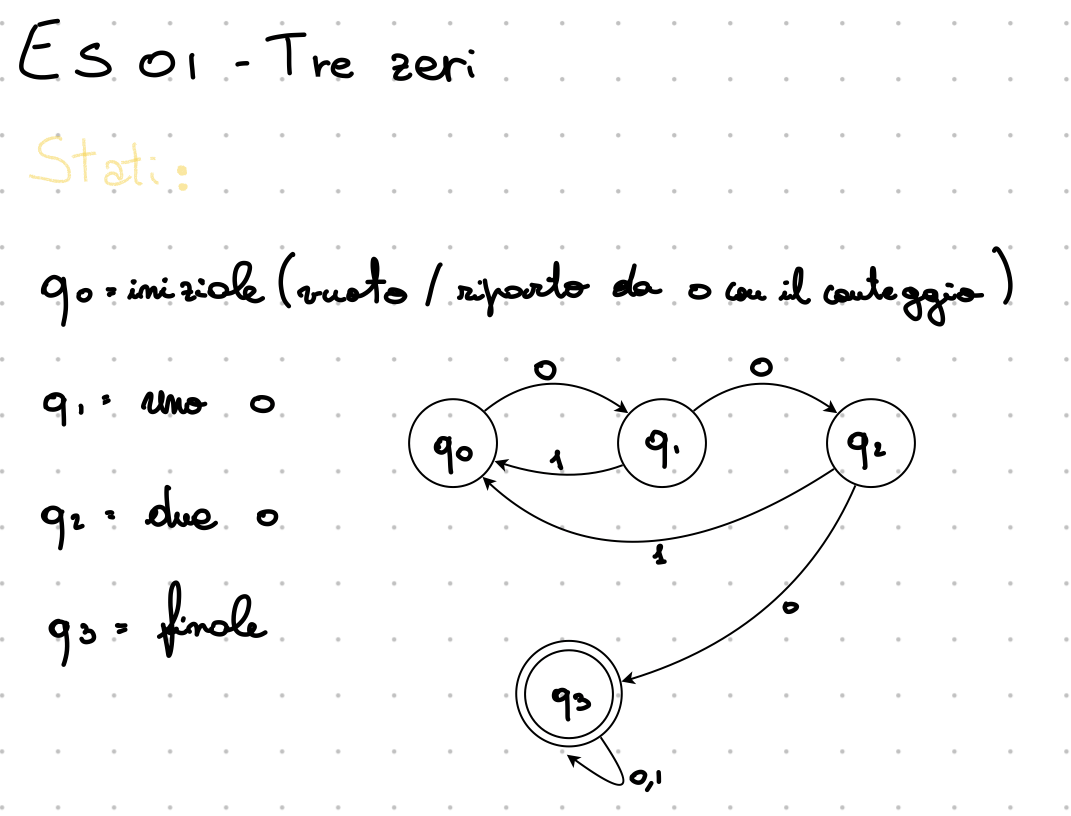 Es 01 - Tre zeri
Stati:
q0 = iniziale (vuoto / riparto da 0 con il conteggio)
q1 = uno 0
q2 = due 0
q3 = finale
0
0
q0
q1
q2
1
1
0
q3
0,1